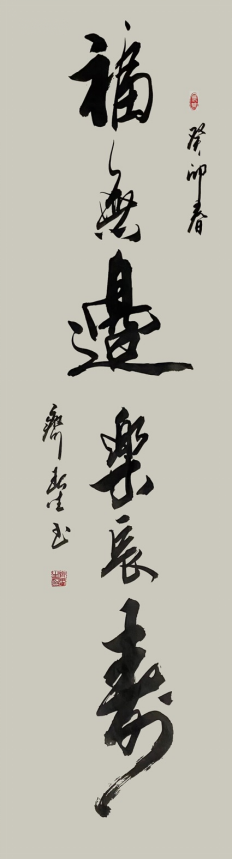 癸卯春
福無邊樂長壽
书